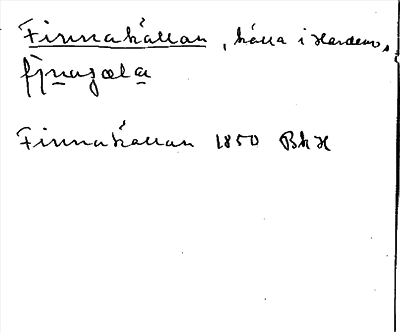 Finnakällan, källa i Hardemo,
fìnaʒæla
Finnakällan 1850 BhH